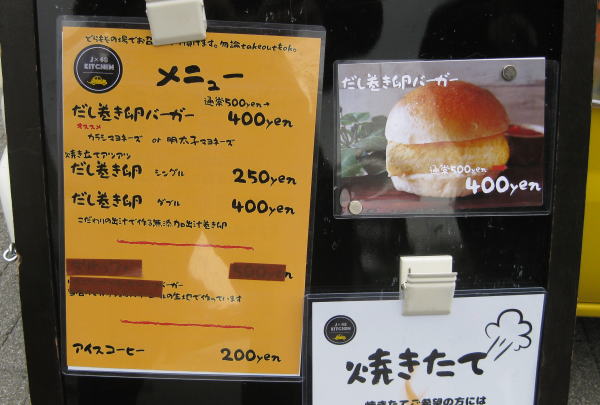 どちらもその場でお召し上がり頂けます。勿論takeoutもok。
J×48
KITCHEN
メニュー
通常500yen→
だし巻き卵バーガー 400yen
オススメ
カラシマヨネーズ or 明太子マヨネーズ
焼き立てアツアツ
だし巻き卵 シングル 250yen
だし巻き卵 ダブル 400yen
こだわりの出汁で作る無添加出汁巻き卵
バーガー
の生地で作っています
アイスコーヒー 200yen
だし巻き卵バーガー
通常500yen
400yen
KITCHEN
焼きたて
焼きたてご希望の方には